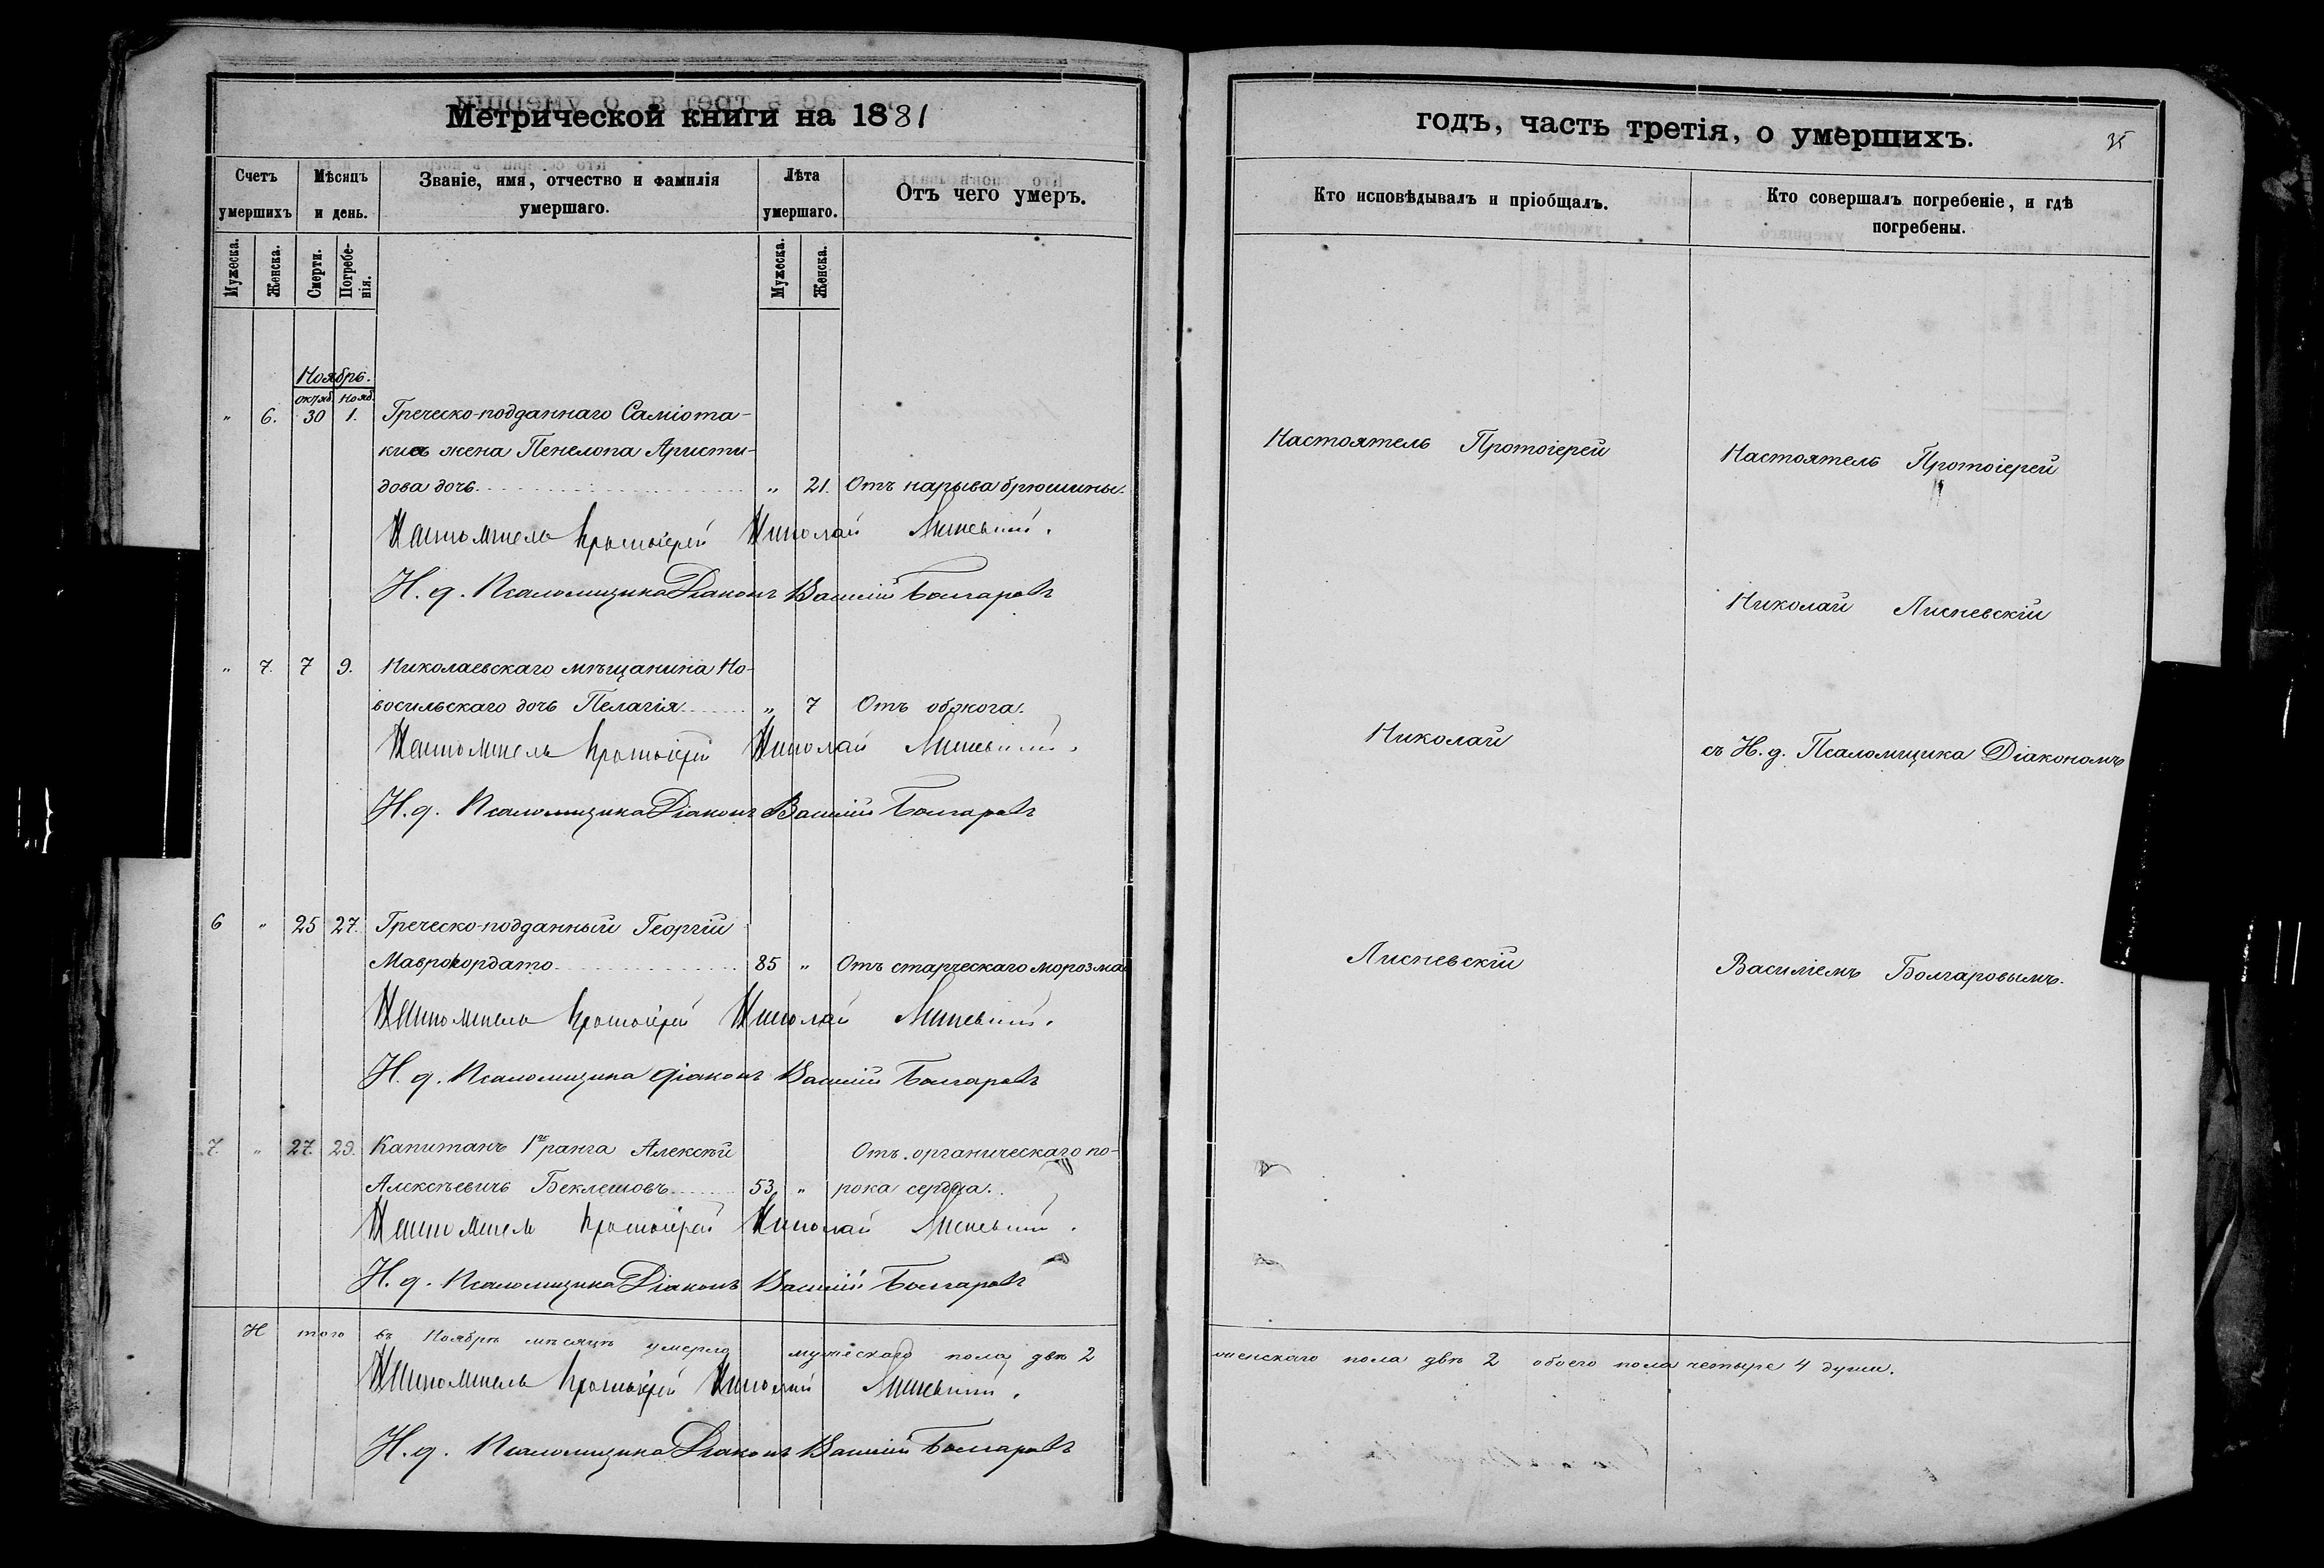 Метрической книги на 1881
Счетъ умершихъ
Мѣсяцъ и день.
Званіе, имя, отчество и фамилія умершаго.
Лѣта умершаго.
Отъ чего умеръ.
Мужеска.
Женска.
Смерти.
Погребенія.
Мужеска.
Женска.
Ноябрь.
октяб. нояб.
„ 6. 30 1. Греческо-подданнаго Саміота-
киса жена Пенелопа Аристи-
дова дочь „ 21. Отъ нарыва брюшины.
Настоятель Протоіерей Николай Лисневскій.
И. д. Псаломщика Діаконъ Василій Болгаровъ
„ 7. 7 9. Николаевскаго мѣщанина Но-
восильскаго дочь Пелагія „ 7 Отъ обжога.
Настоятель Протоіерей Николай Лисневскій.
И. д. Псаломщика Діаконъ Василій Болгаровъ
6 „ 25 27. Греческо-подданный Георгій
Маврокордато 85 „ Отъ старческаго морозма
Настоятель Протоіерей Николай Лисневскій.
И. д. Псаломщика Діаконъ Василій Болгаровъ
7. „ 27. 29. Капитанъ 1го ранга Алексѣй Отъ органическаго по-
Алексѣевичъ Беклешовъ 53. „ рока сердца.
Настоятель Протоіерей Николай Лисневскій.
И. д. Псаломщика Діаконъ Василій Болгаровъ
И того въ Ноябрѣ мѣсяцѣ умерло мужескаго пола двѣ 2
Настоятель Протоіерей Николай Лисневскій.
И. д. Псаломщика Діаконъ Василій Болгаровъ
годъ, часть третія, о умершихъ.
35
Кто исповѣдывалъ и пріобщалъ.
Кто совершалъ погребеніе, и гдѣ погребены.
Настоятель Протоіерей
Николай
Лисневскій
Настоятель Протоіерей
Николай Лисневскій
съ И. д. Псаломщика Діакономъ
Василіемъ Болгаровымъ.
женскаго пола двѣ 2 обоего пола четыре 4 души.